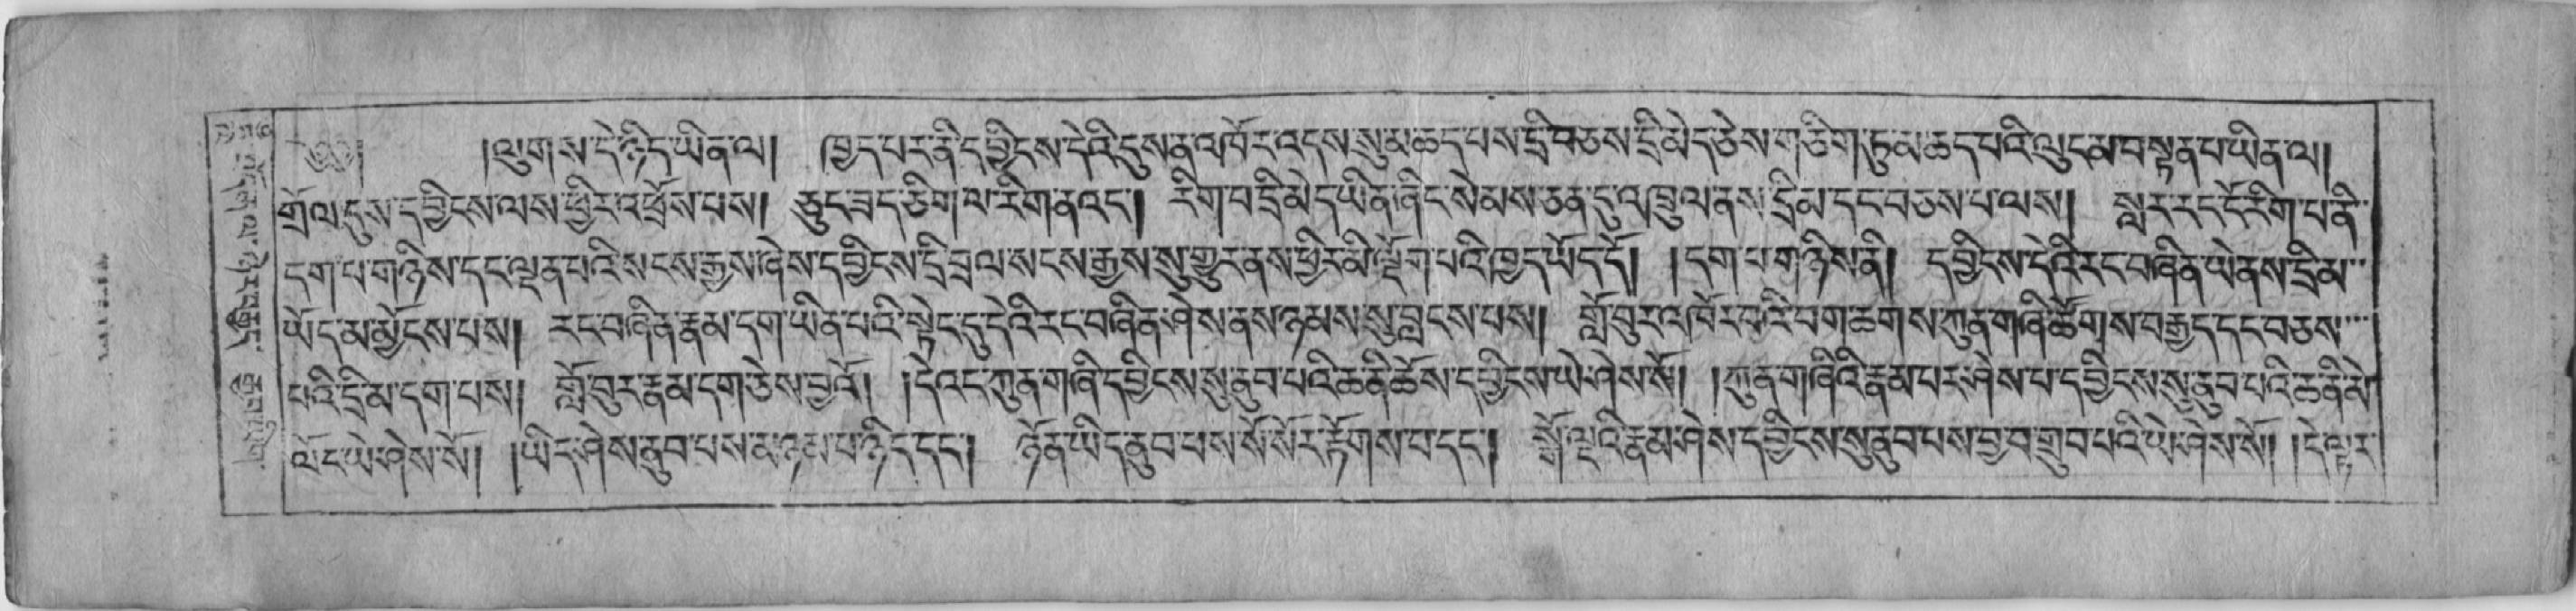 ༄༅། །ལུགས་དེ་ཉིད་ཡིན་ལ། ཁྱད་པར་ནི་དབྱིངས་དེའི་དུས་ན་འཁོར་འདས་སུ་མ་ཆད་པས་དྲི་བཅས་དྲི་མེད་ཅེས་གཅིག་ཏུ་མ་ཆད་པའི་ལུང་མ་བསྟན་པ་ཡིན་ལ།
གྲོལ་དུས་དབྱིངས་ལས་ཕྱིར་འཕྲོས་པས། ཅུང་ཟད་ཅིག་ལ་རིག་ནའང་། རིག་པ་དྲི་མེད་ཡིན་ཞིང་སེམས་ཅན་དུ་འཁྲུལ་ནས་དྲི་མ་དང་བཅས་པ་ལས། སླར་རང་ངོ་རིག་པ་ནི་
དག་པ་གཉིས་དང་ལྡན་པའི་སངས་རྒྱས་ཞེས་དབྱིངས་དྲི་བྲལ་སངས་རྒྱས་སུ་གྱུར་ནས་ཕྱིར་མི་ལྡོག་པའི་ཁྱད་ཡོད་དོ། །དག་པ་གཉིས་ནི། དབྱིངས་དེའི་རང་བཞིན་ཡེ་ནས་དྲི་མ་
ཡོད་མ་མྱོངས་པས། རང་བཞིན་རྣམ་དག་ཡིན་པའི་སྟེང་དུ་དེའི་རང་བཞིན་ཤེས་ནས་ཉམས་སུ་བླངས་པས། གློ་བུར་འཁོར་བའི་བག་ཆགས་ཀུན་གཞི་ཚོགས་བརྒྱད་དང་བཅས་
པའི་དྲི་མ་དག་པས། གློ་བུར་རྣམ་དག་ཅེས་བྱའོ། །དེའང་ཀུན་གཞི་དབྱིངས་སུ་ནུབ་པའི་ཆ་ནི་ཆོས་དབྱིངས་ཡེ་ཤེས་སོ། །ཀུན་གཞིའི་རྣམ་པར་ཤེས་པ་དབྱིངས་སུ་ནུབ་པའི་ཆ་ནི་མེ་
ལོང་ཡེ་ཤེས་སོ། །ཡིད་ཤེས་ནུབ་པས་མཉམ་པ་ཉིད་དང་། ཉོན་ཡིད་ནུབ་པས་སོ་སོར་རྟོགས་པ་དང་། སྒོ་ལྔའི་རྣམ་ཤེས་དབྱིངས་སུ་ནུབ་པས་བྱ་བ་གྲུབ་པའི་ཡེ་ཤེས་སོ། །དེ་ལྟར་